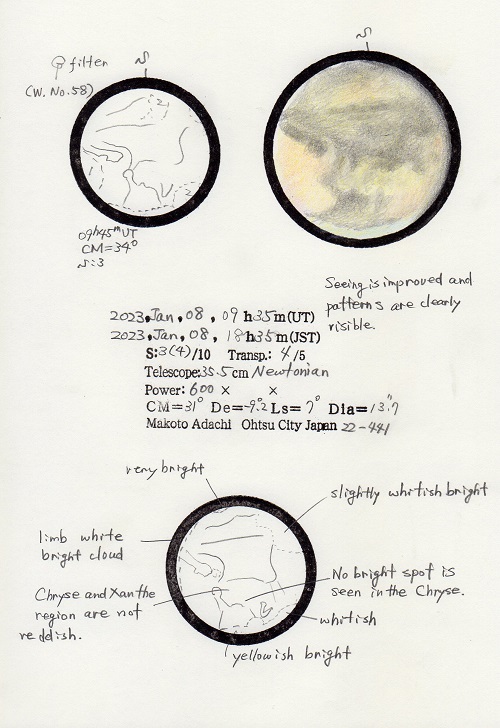 filter
(W. No. 58)
S
S
2
2
09h45mUT
CM=34°
S:3
Seeing is improved and
patterns are clearly
visible.
2023, Jan, 08, 09 h35m(UT)
2023, Jan, 08, 18h35m(JST)
S:3(4)/10 Transp.: 4/5
Telescope:35.5cm Newtonian
Power: 600 × ×
CM=31° De=-9.2 Ls=7° Dia=13."7
Makoto Adachi Ohtsu City Japan 22-441
very bright
slightly whitish bright
limb white
bright cloud
No bright spot is
seen in the Chryse.
Chryse and Xanthe
region are not
reddish.
whitish
yellowish bright